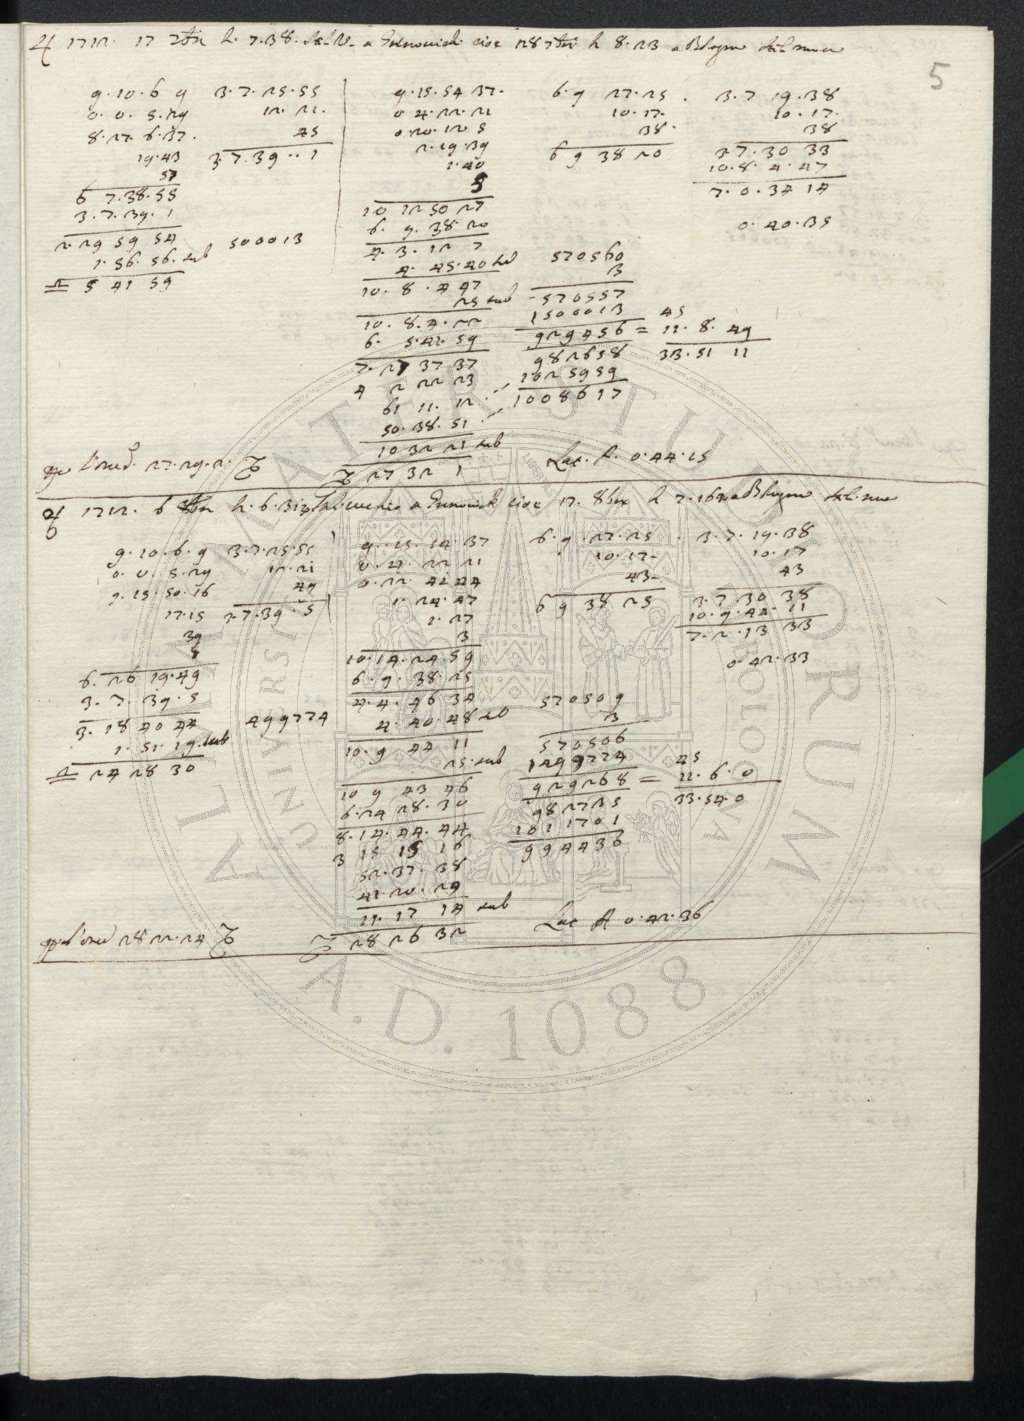 5
♃ 1712. 17 7br h. 7.38. a Grenouich cioe 28 7br h 8.23 a Bologna
9.10.6 9
0.0.5.29
8.27.6.37.
19.43
57
6 7.38.55
3.7.39.1
2 29 59 54
1.56.56. sub
♎ 5 41 59
3.7.25.55
12.21.
45
3.7.39..1
500013
9.15.54 37.
0 4.22.21
0 20.12 5
2.19.39
1.40
5
10 12 50 27
6. 9.38.20
4.3.12 7
4.45.40 sub
10.8.4 47
25 sub
10.8.4.22
6. 5.41 59
7.27 37 37
4 2 22 23
61 11.12
50.38.51
10 32 21 sub
♑ 27 32 1
6 9 27.25.
10.17.
38.
6 9 38 20
570560
3
570557
1500013
929456 =
982658
1025959
1008617
45
11.8.49
33.51 11
3.7 19.38
10.17.
38
3 7.30 33
10.8.4.47
7.0.34 14
0.40.35
27.29.2. ♑
Lat. A. 0.44.15
♃ 1712. 6 h. 6.31 a Grenouich cioe 17. 8bre h 7.16 a Bologna
9.10.6.9
0.0.5.29
9.15.50.16
17.15
39
1
6.26 19.49
3.7.39.5
3.18 40 44
1.51.19. sub
♎ 24 28 30
3.7.25.55
12.21
49
3.7.39.5
499774
9.15.14.37
0.4.22 21
0.22 42 44
1.24.47
1.27
3
10.14.24.59
6.9.38.25
4.4.46 34
4.40.48 sub
10.9 44 11
25. sub
10 9 43 46
6.24 28.30
8.14.44.44
3 15 15 16
52.37.38
41 20.29
11.17 14 sub
♑ 28 26 32
6.9.27.25
10.17.
43.
6 9 38 25
570509
3
570506
1499774
929268 =
982735
1011701
994436
45
11.6.0
33.54.0
3.7.19.38
10.17
43
3.7 30 38
10.9.44.11
7.2.13 33
0.42.33
28 22.24 ♑
Lat A 0.42.36
ALMA MATER STUDIORUM
UNIVERSITÀ DI BOLOGNA
A.D. 1088